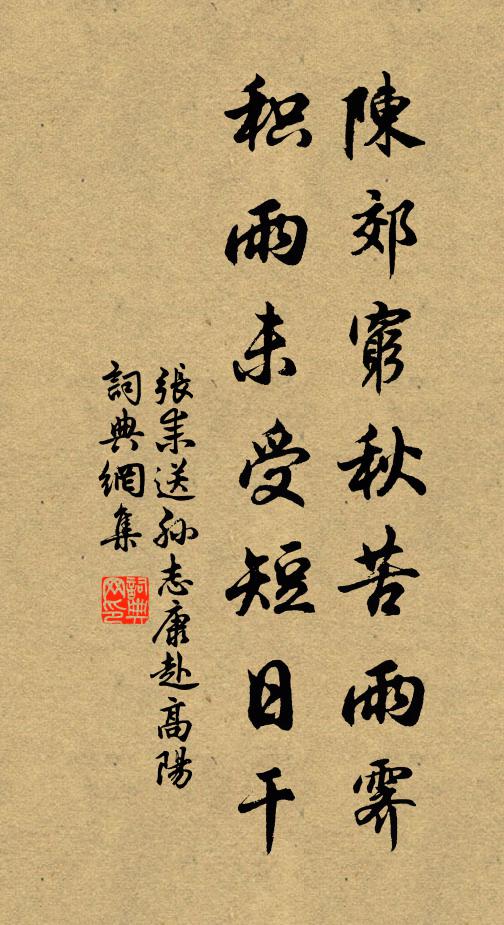 陳郊窮秋苦雨霽
积雨未受短日干
張耒送孫志康赴高陽
詞典網集
詞典网印